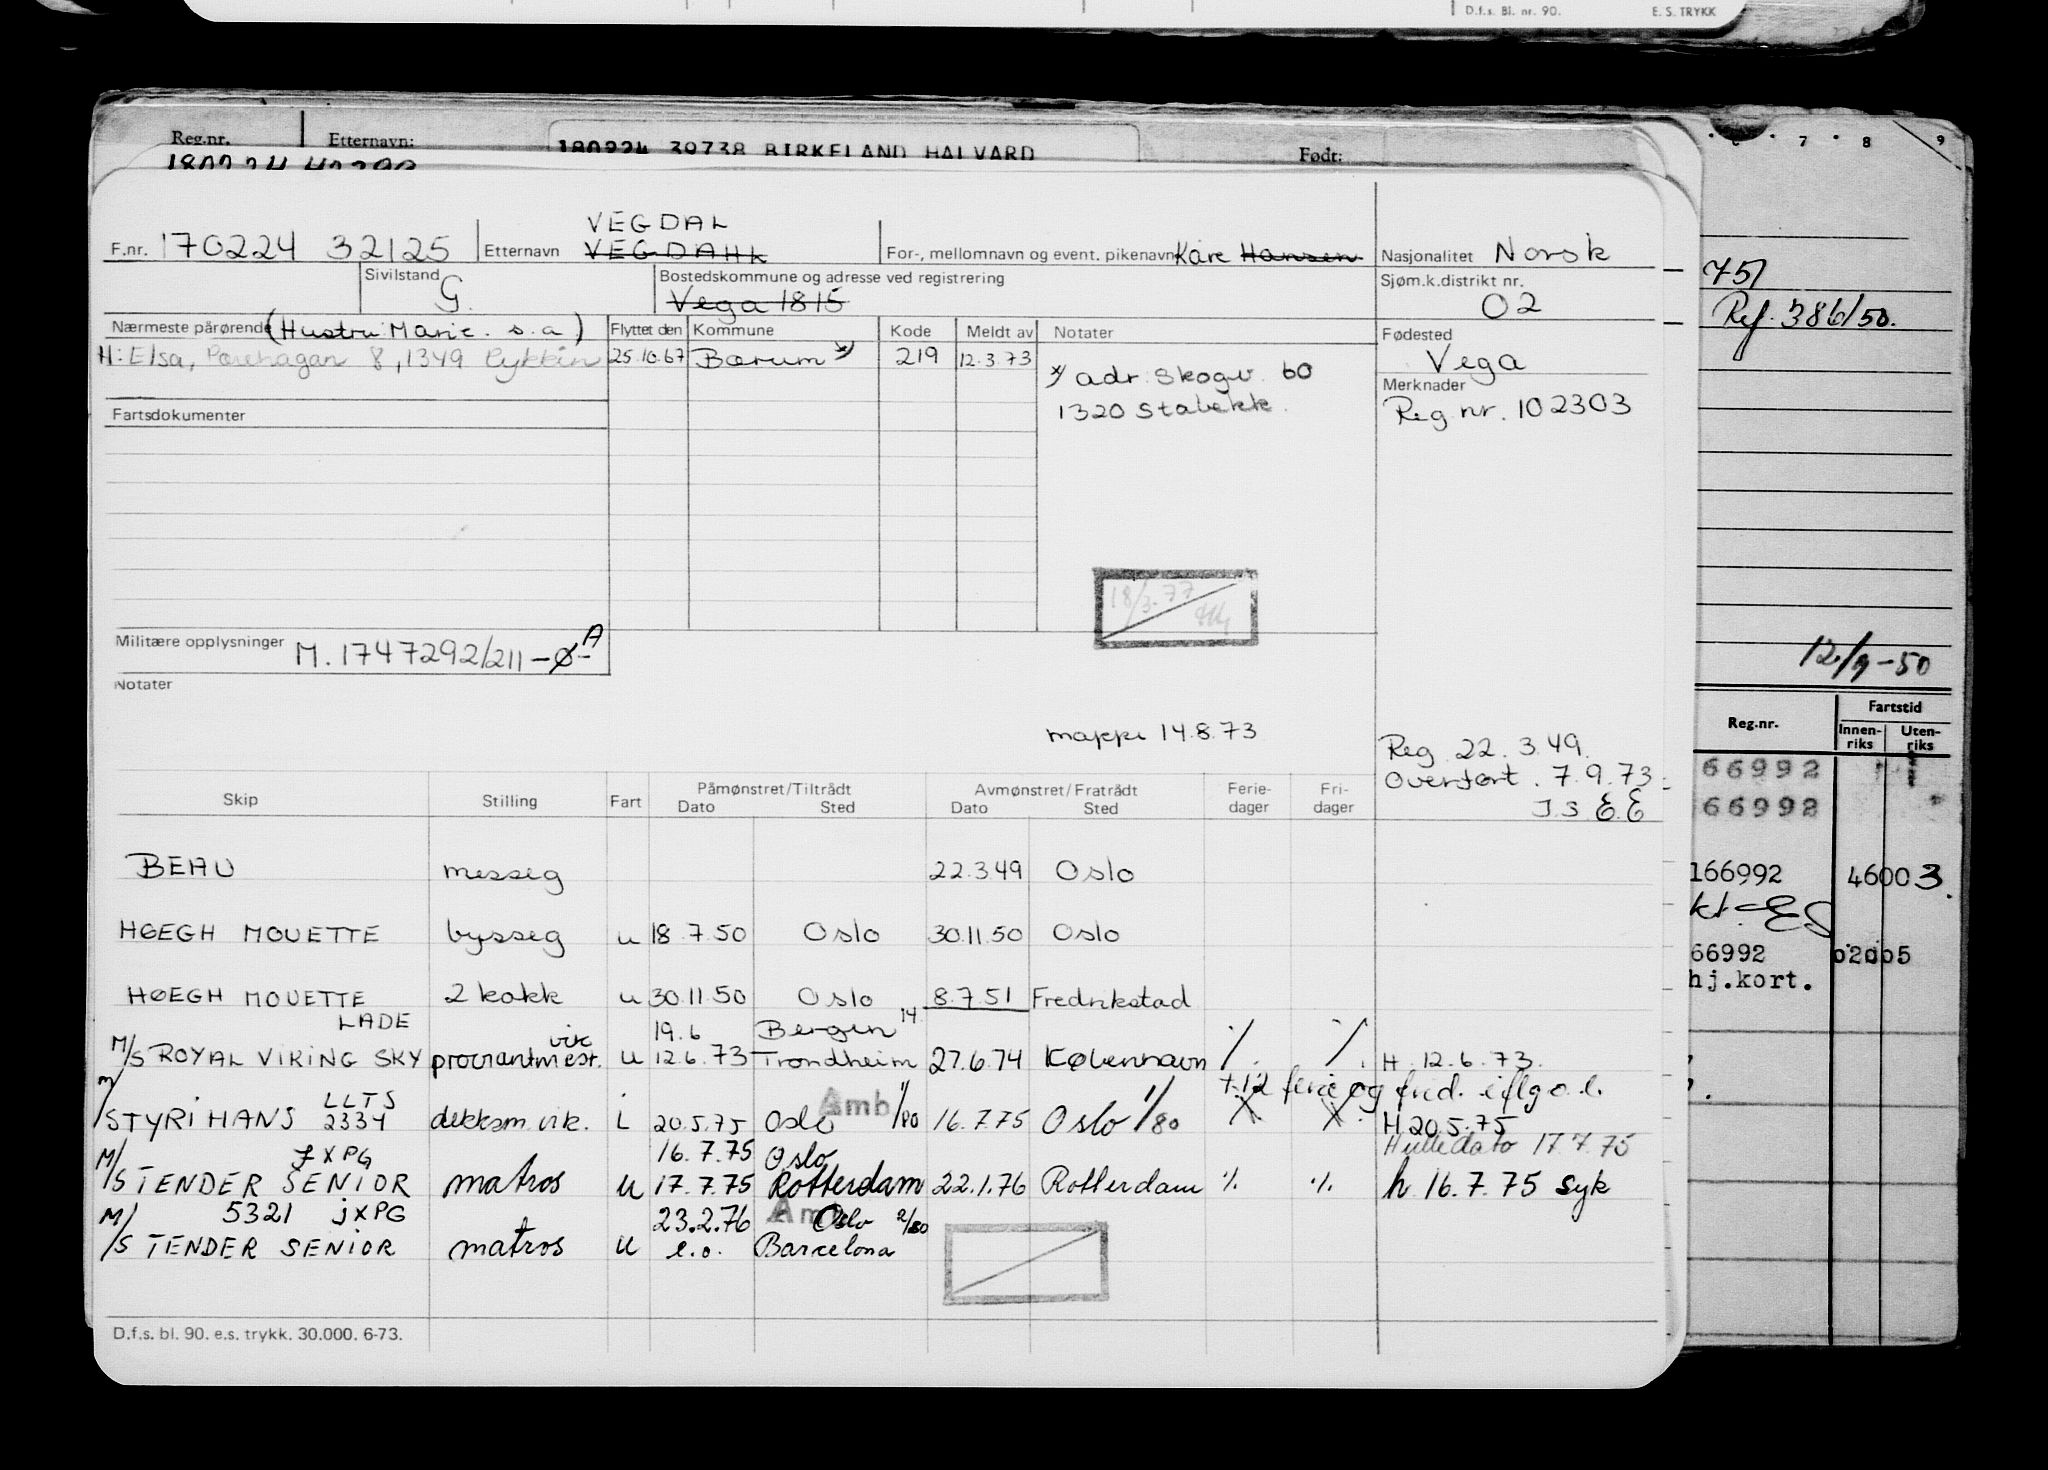 D.f.s. Bl. nr. 90. E. S. TRYKK
Reg.nr. Etternavn: 180224 39738 BIRKELAND HALVARD Født:
7 8 9
F.nr. 170224 32125 Etternavn VEGDAL VEGDAHL For-, mellomnavn og event. pikenavn Kåre Hansen Nasjonalitet Norsk
Sivilstand G. Bostedskommune og adresse ved registrering Vega 1815 Sjøm.k.distrikt nr. 02
Nærmeste pårørende (Hustru: Marie. s.a) Flyttet den Kommune Kode Meldt av Notater Fødested Vega
H: Elsa, 8, 1349 25.10.67 Bærum x) 219 12.3.73
x) adr. Skogv. 60
1320 Stabekk.
Merknader
Reg nr. 102303
Fartsdokumenter
18/3.77
Militære opplysninger M.1747292/211-Ø-A
Notater
mappe 14.8.73
Reg 22.3.49.
Overført. 7.9.73
Skip Stilling Fart Påmønstret/Tiltrådt Dato Sted Avmønstret/Fratrådt Dato Sted Ferie-dager Fri-dager
BEAU messeg 22.3.49 Oslo
HØEGH MOUETTE bysseg u 18.7.50 Oslo 30.11.50 Oslo
HØEGH MOUETTE 2 kokk u 30.11.50 Oslo 8.7.51 Fredrikstad
LADE vik 19.6 Bergen 14
M/S ROYAL VIKING SKY proviantmest. u 12.6.73 Trondheim 27.6.74 København ./. ./. H. 12.6.73.
+12 ferie og frid. iflg o.l.
LLTS
M/S TYRIHANS 2334 dekksm. vik. i 20.5.75 Oslo Amb 1/80 16.7.75 Oslo 1/80 X X H 20.5.75
Hulledato 17.7.75
JXPG 16.7.75 Oslo
M/S TENDER SENIOR matros u 17.7.75 Rotterdam 22.1.76 Rotterdam ./. ./. h 16.7.75 syk
5321 JXPG 23.2.76 Am Oslo 2/80
M/S TENDER SENIOR matros u e.o. Barcelona
D.f.s. bl. 90. e.s. trykk. 30.000. 6-73.
75)
Ref. 386/50.
12/9-50
Reg.nr. Fartstid
Innen-riks Uten-riks
66992
66992
166992 46003.
66992 02005
hj.kort.